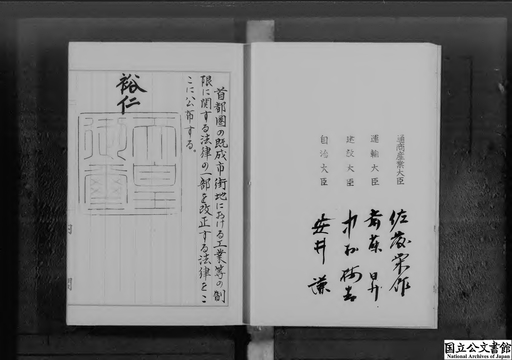 首都圏の既成市街地における工業等の制
限に関する法律の一部を改正する法律をこ
こに公布する。
裕仁
天皇
御璽
通商産業大臣 佐藤栄作
運輸大臣 斎藤昇
建設大臣 中村梅吉
自治大臣 安井謙
国立公文書館
National Archives of Japan